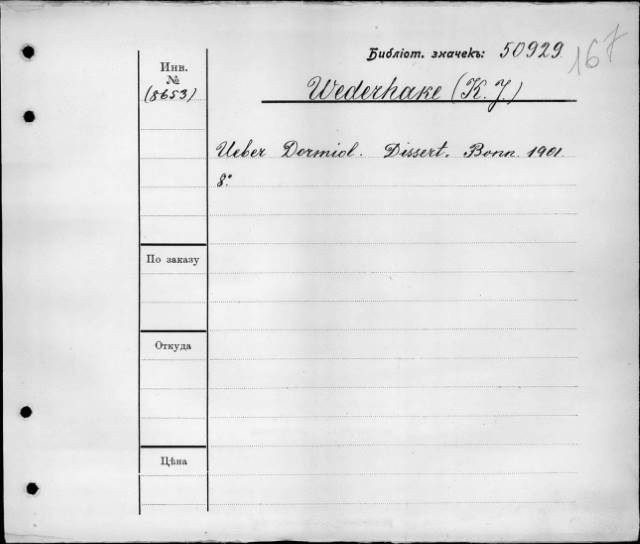 Библіот. значекъ: 50929
167
Инв.
№
(8653)
Wederhake (K. J)
Ueber Dormiol. Dissert. Bonn 1901.
8°
По заказу
Откуда
Цѣна